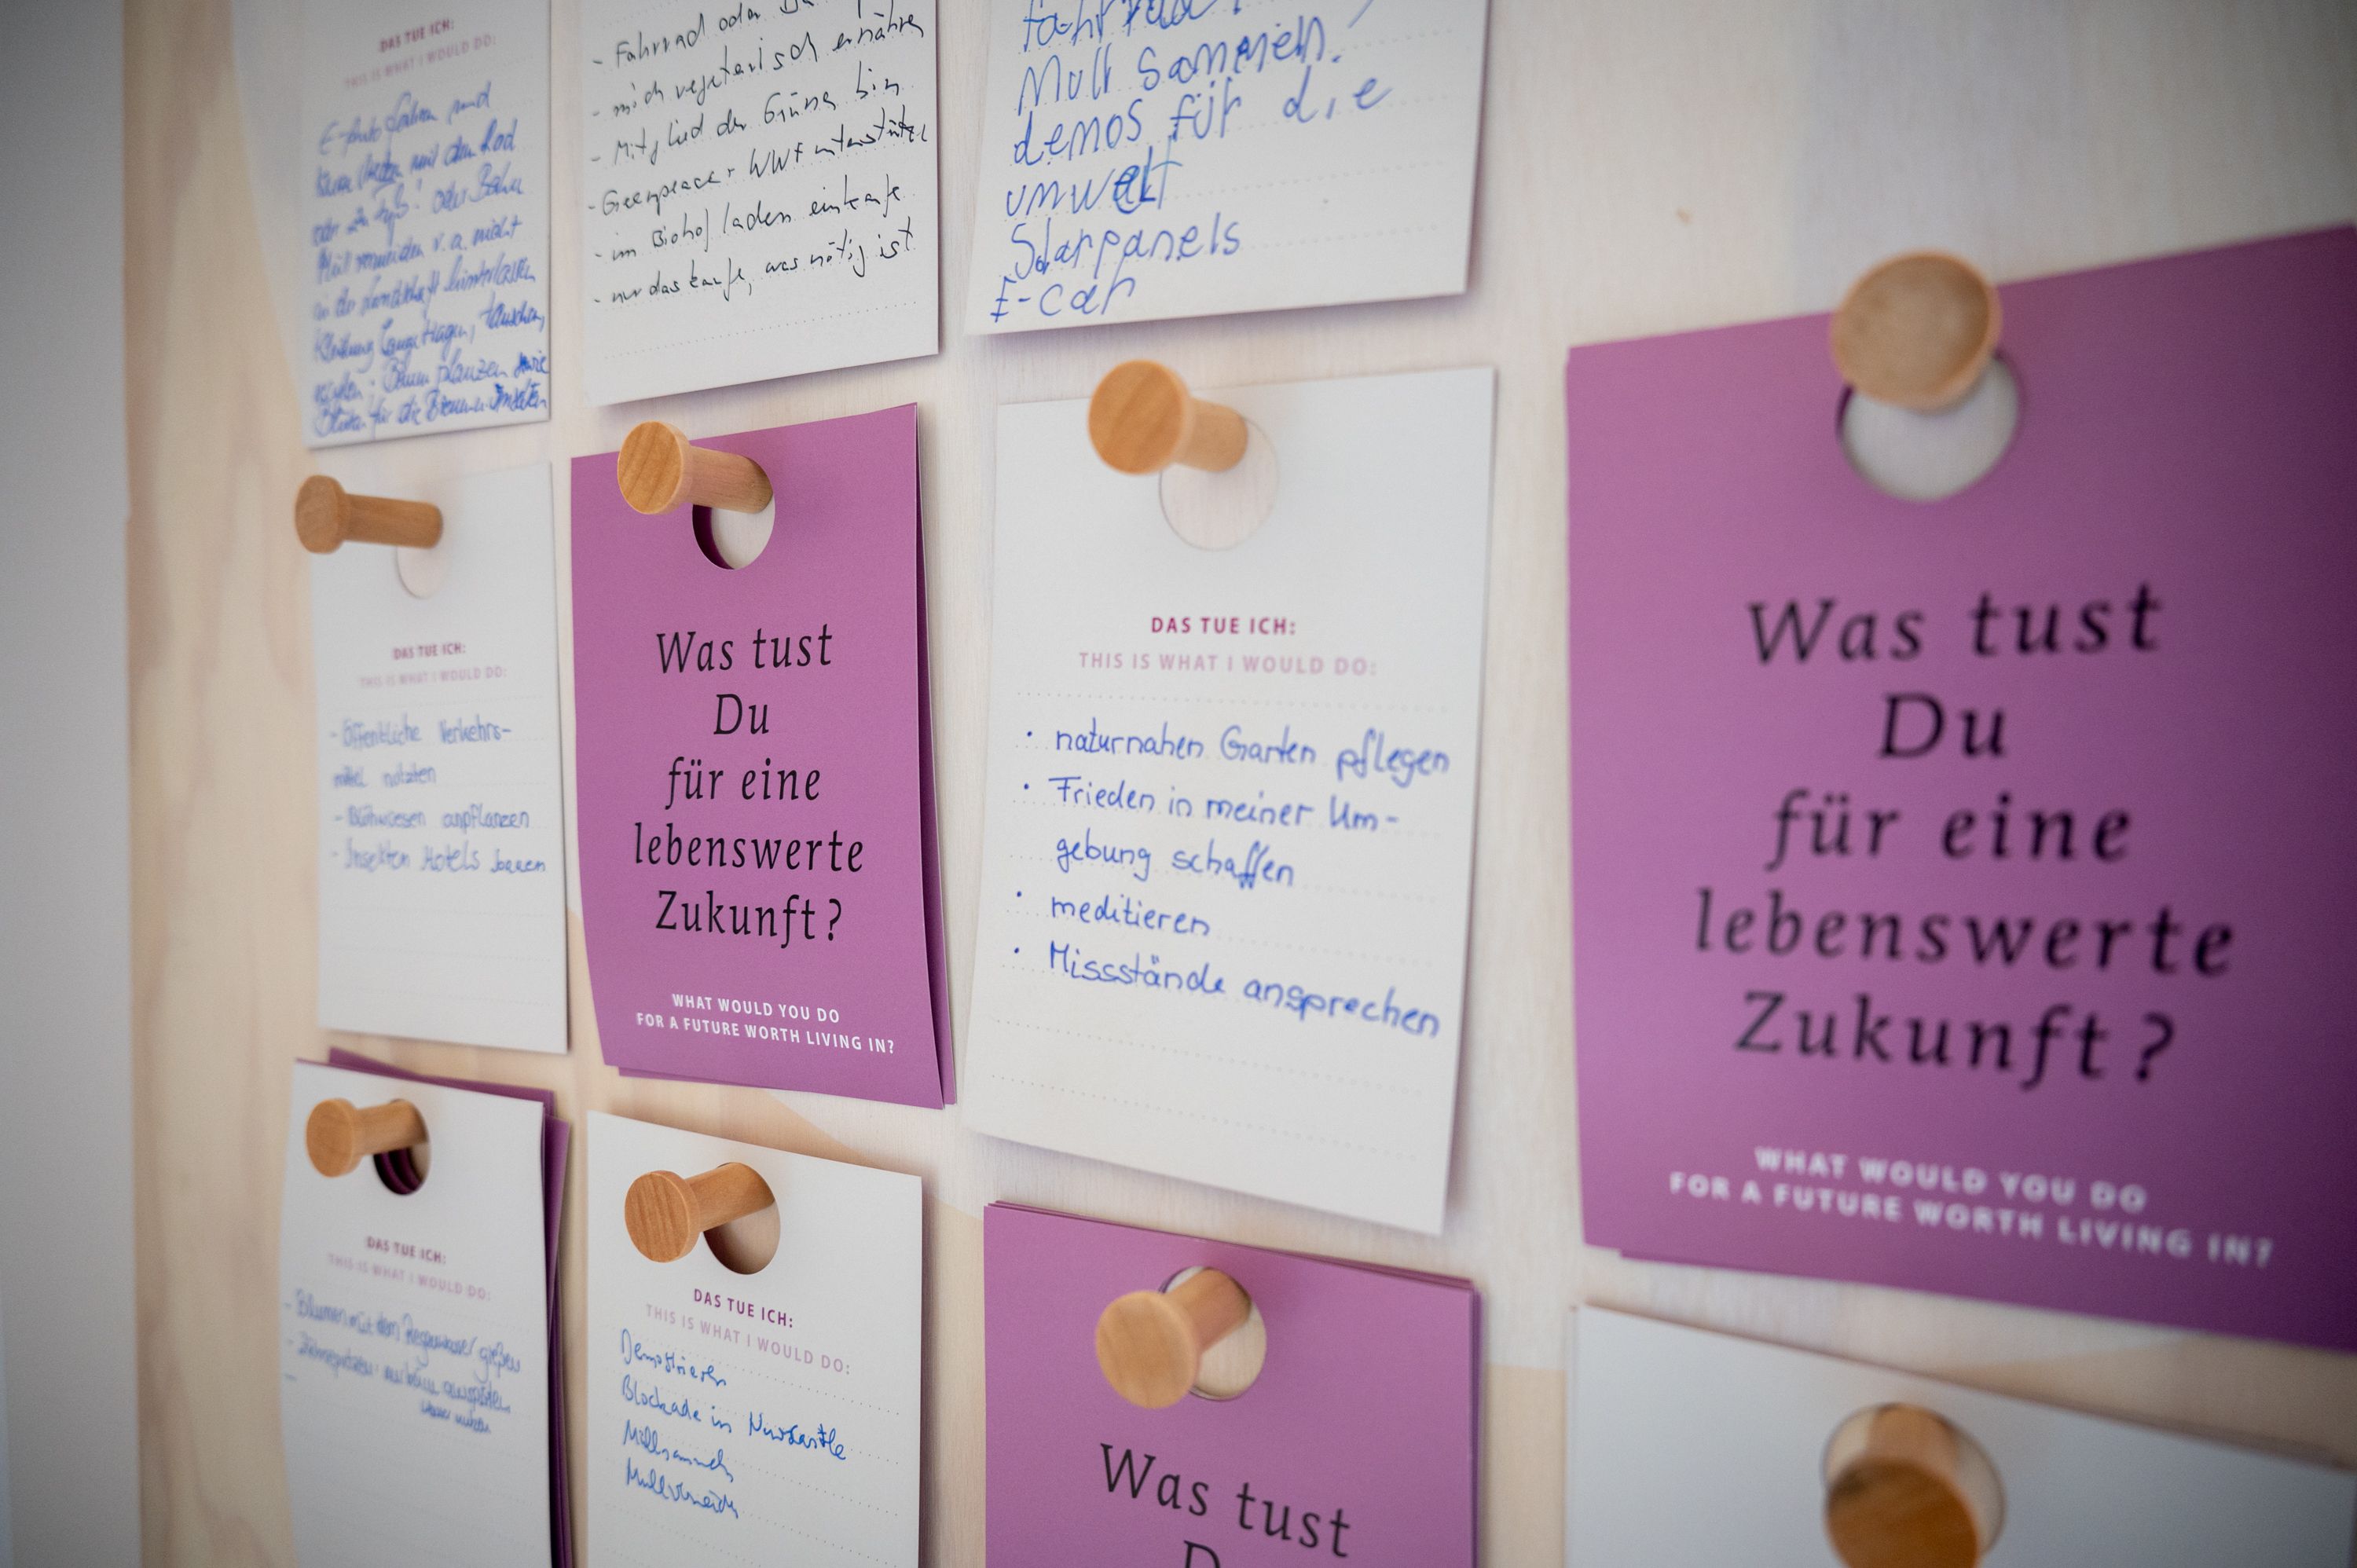 DAS TUE ICH:
THIS IS WHAT I WOULD DO:
E-Auto fahren und
mit dem Rad
oder zu Fuß! oder Bahn
Müll vermeiden v.a. nicht
in der Landschaft hinterlassen
Kleidung lange tragen, tauschen,
Baum pflanzen sowie
Blüten für die Bienen Insekten
- Fahrrad oder
- mich vegetarisch ernähre
- Mitglied der Grüne bin
- Greenpeace + WWF unterstütze
- im Biohofladen einkaufe
- nur das kaufe, was nötig ist
fahrrad
Müll Sammeln.
demos für die
umwelt
Solarpanels
E-car
DAS TUE ICH:
THIS IS WHAT I WOULD DO:
- Öffentliche Verkehrs-
mittel nutzen
- Blühwiesen anpflanzen
- Insekten Hotels bauen
Was tust
Du
für eine
lebenswerte
Zukunft?
WHAT WOULD YOU DO
FOR A FUTURE WORTH LIVING IN?
DAS TUE ICH:
THIS IS WHAT I WOULD DO:
• naturnahen Garten pflegen
• Frieden in meiner Um-
gebung schaffen
• meditieren
• Missstände ansprechen
Was tust
Du
für eine
lebenswerte
Zukunft?
WHAT WOULD YOU DO
FOR A FUTURE WORTH LIVING IN?
DAS TUE ICH:
THIS IS WHAT I WOULD DO:
- Blumen mit dem Regenwasser gießen
- Zähneputzen
DAS TUE ICH:
THIS IS WHAT I WOULD DO:
Demostrieren
Blockade in Newcastle
Müllsammeln
Müllvermeiden
Was tust